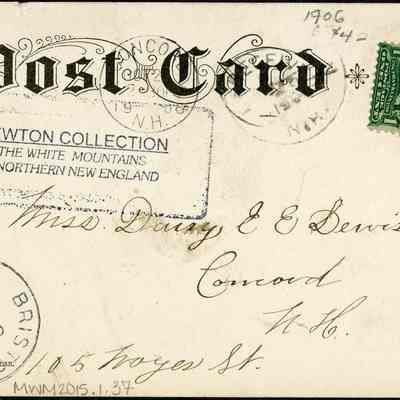 1906
Post Card
LINCOLN
1906
N.H.
N.H.
NEWTON COLLECTION
THE WHITE MOUNTAINS
NORTHERN NEW ENGLAND
Miss. Daisy E E Lewis
Concord
N.H.
BRISTO
105 Noyes St.
MWM2015.1.37